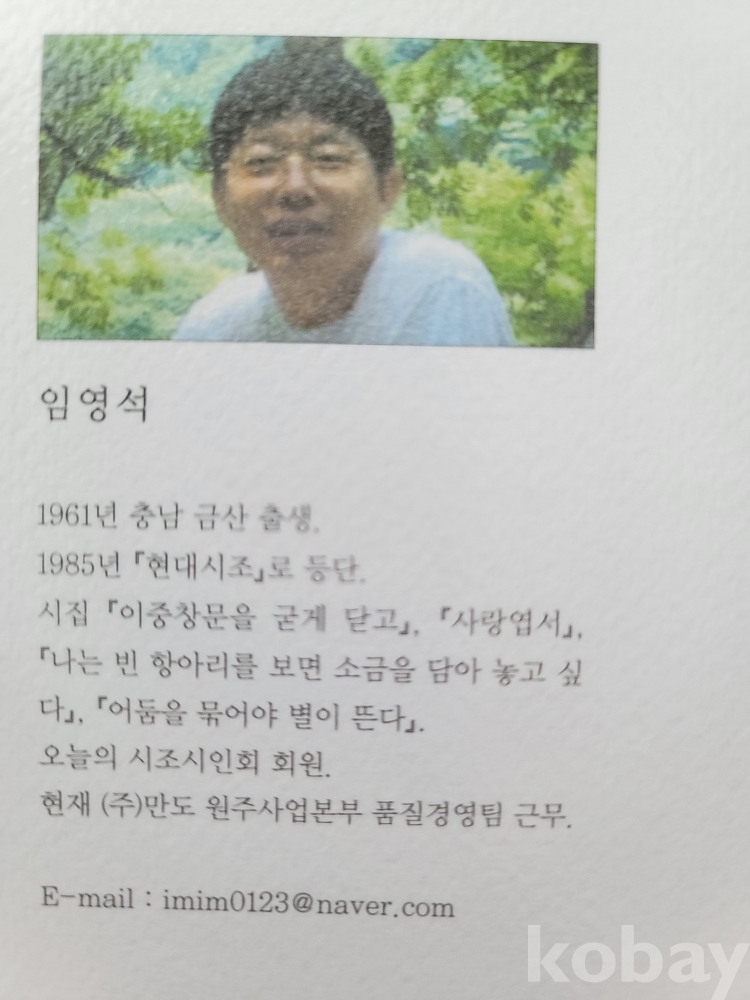 임영석
1961년 충남 금산 출생.
1985년 『현대시조』로 등단.
시집 『이중창문을 굳게 닫고』, 『사랑엽서』,
『나는 빈 항아리를 보면 소금을 담아 놓고 싶
다』, 『어둠을 묶어야 별이 뜬다』.
오늘의 시조시인회 회원.
현재 (주)만도 원주사업본부 품질경영팀 근무.
E-mail : imim0123@naver.com
kobay